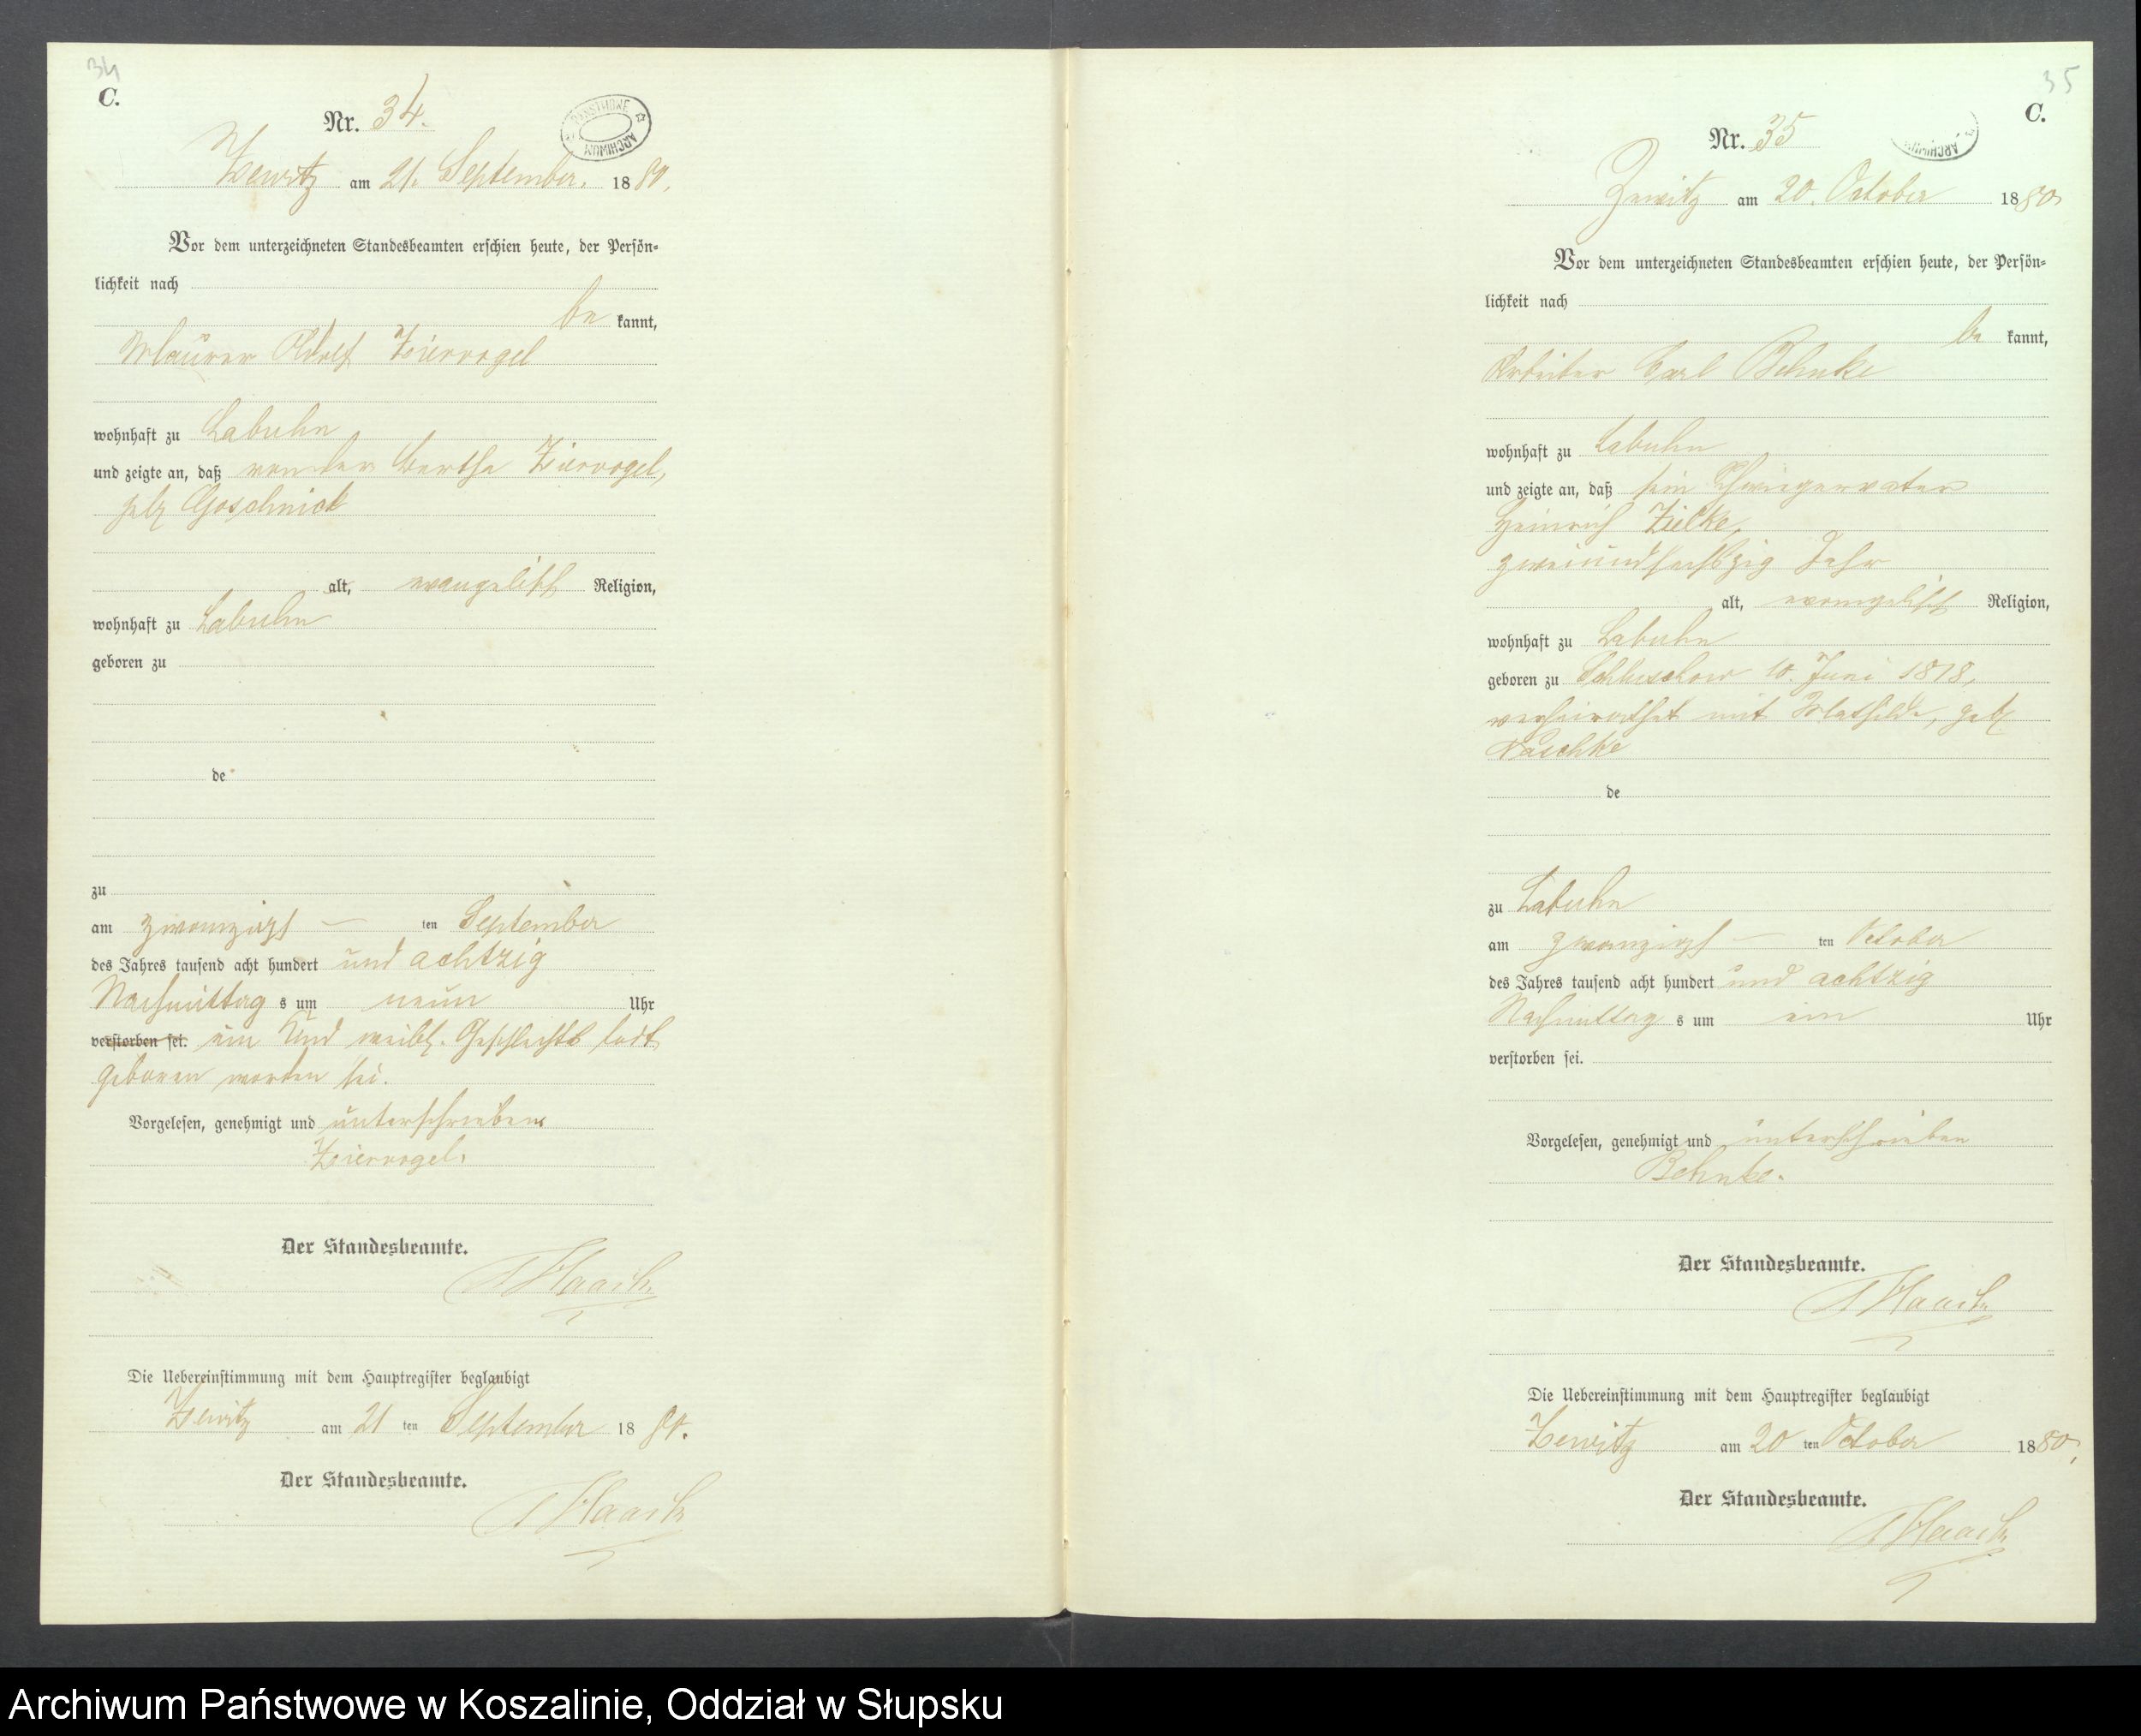 34
C.
Nr. 34.
ARCHIWUM PAŃSTWOWE
Zewitz am 21. September. 1880.
Vor dem unterzeichneten Standesbeamten erschien heute, der Persön-
lichkeit nach
be kannt,
Maurer Adolf Ziervogel
wohnhaft zu Labuhn
und zeigte an, daß von der Bertha Ziervogel,
geb Goschnick
alt, evangelisch Religion,
wohnhaft zu Labuhn
geboren zu
de
zu
am zwanzigs – ten September
des Jahres tausend acht hundert und achtzig
Nachmittag s um neun Uhr
verstorben sei. ein Kind weibl. Geschlechts todt
geboren worden sei.
Vorgelesen, genehmigt und unterschrieben
Ziervogel.
Der Standesbeamte.
Haack
Die Uebereinstimmung mit dem Hauptregister beglaubigt
Zewitz am 21 ten September 1880.
Der Standesbeamte.
Haack
35
C.
Nr. 35
ARCHIWUM
Zewitz am 20. October 1880
Vor dem unterzeichneten Standesbeamten erschien heute, der Persön-
lichkeit nach
be kannt,
Arbeiter Carl Behnke
wohnhaft zu Labuhn
und zeigte an, daß sein Schwiegervater
Heinrich Zielke,
zweiundsechszig Jahr
alt, evangelisch Religion,
wohnhaft zu Labuhn
geboren zu 10. Juni 1818,
verheirathet mit Mathilde, geb
de
zu Labuhn
am zwanzigs – ten October
des Jahres tausend acht hundert und achtzig
Nachmittag s um ein Uhr
verstorben sei.
Vorgelesen, genehmigt und unterschrieben
Behnke.
Der Standesbeamte.
Haack
Die Uebereinstimmung mit dem Hauptregister beglaubigt
Zewitz am 20 ten October 1880,
Der Standesbeamte.
Haack
Archiwum Państwowe w Koszalinie, Oddział w Słupsku